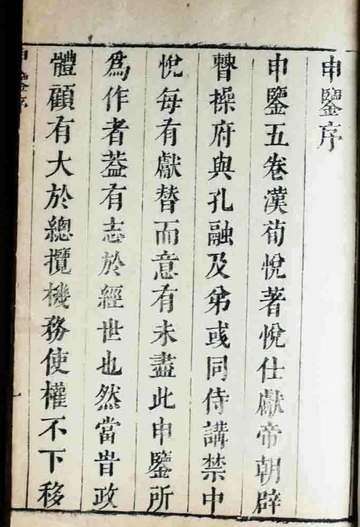 申鑒序
申鑒五卷漢荀悅著悅仕獻帝朝辟
曹操府與孔融及弟或同侍講禁中
悅每有獻替而意有未盡此申鑒所
為作者葢有志於經世也然當旹政
體顧有大於總攬機務使權不下移